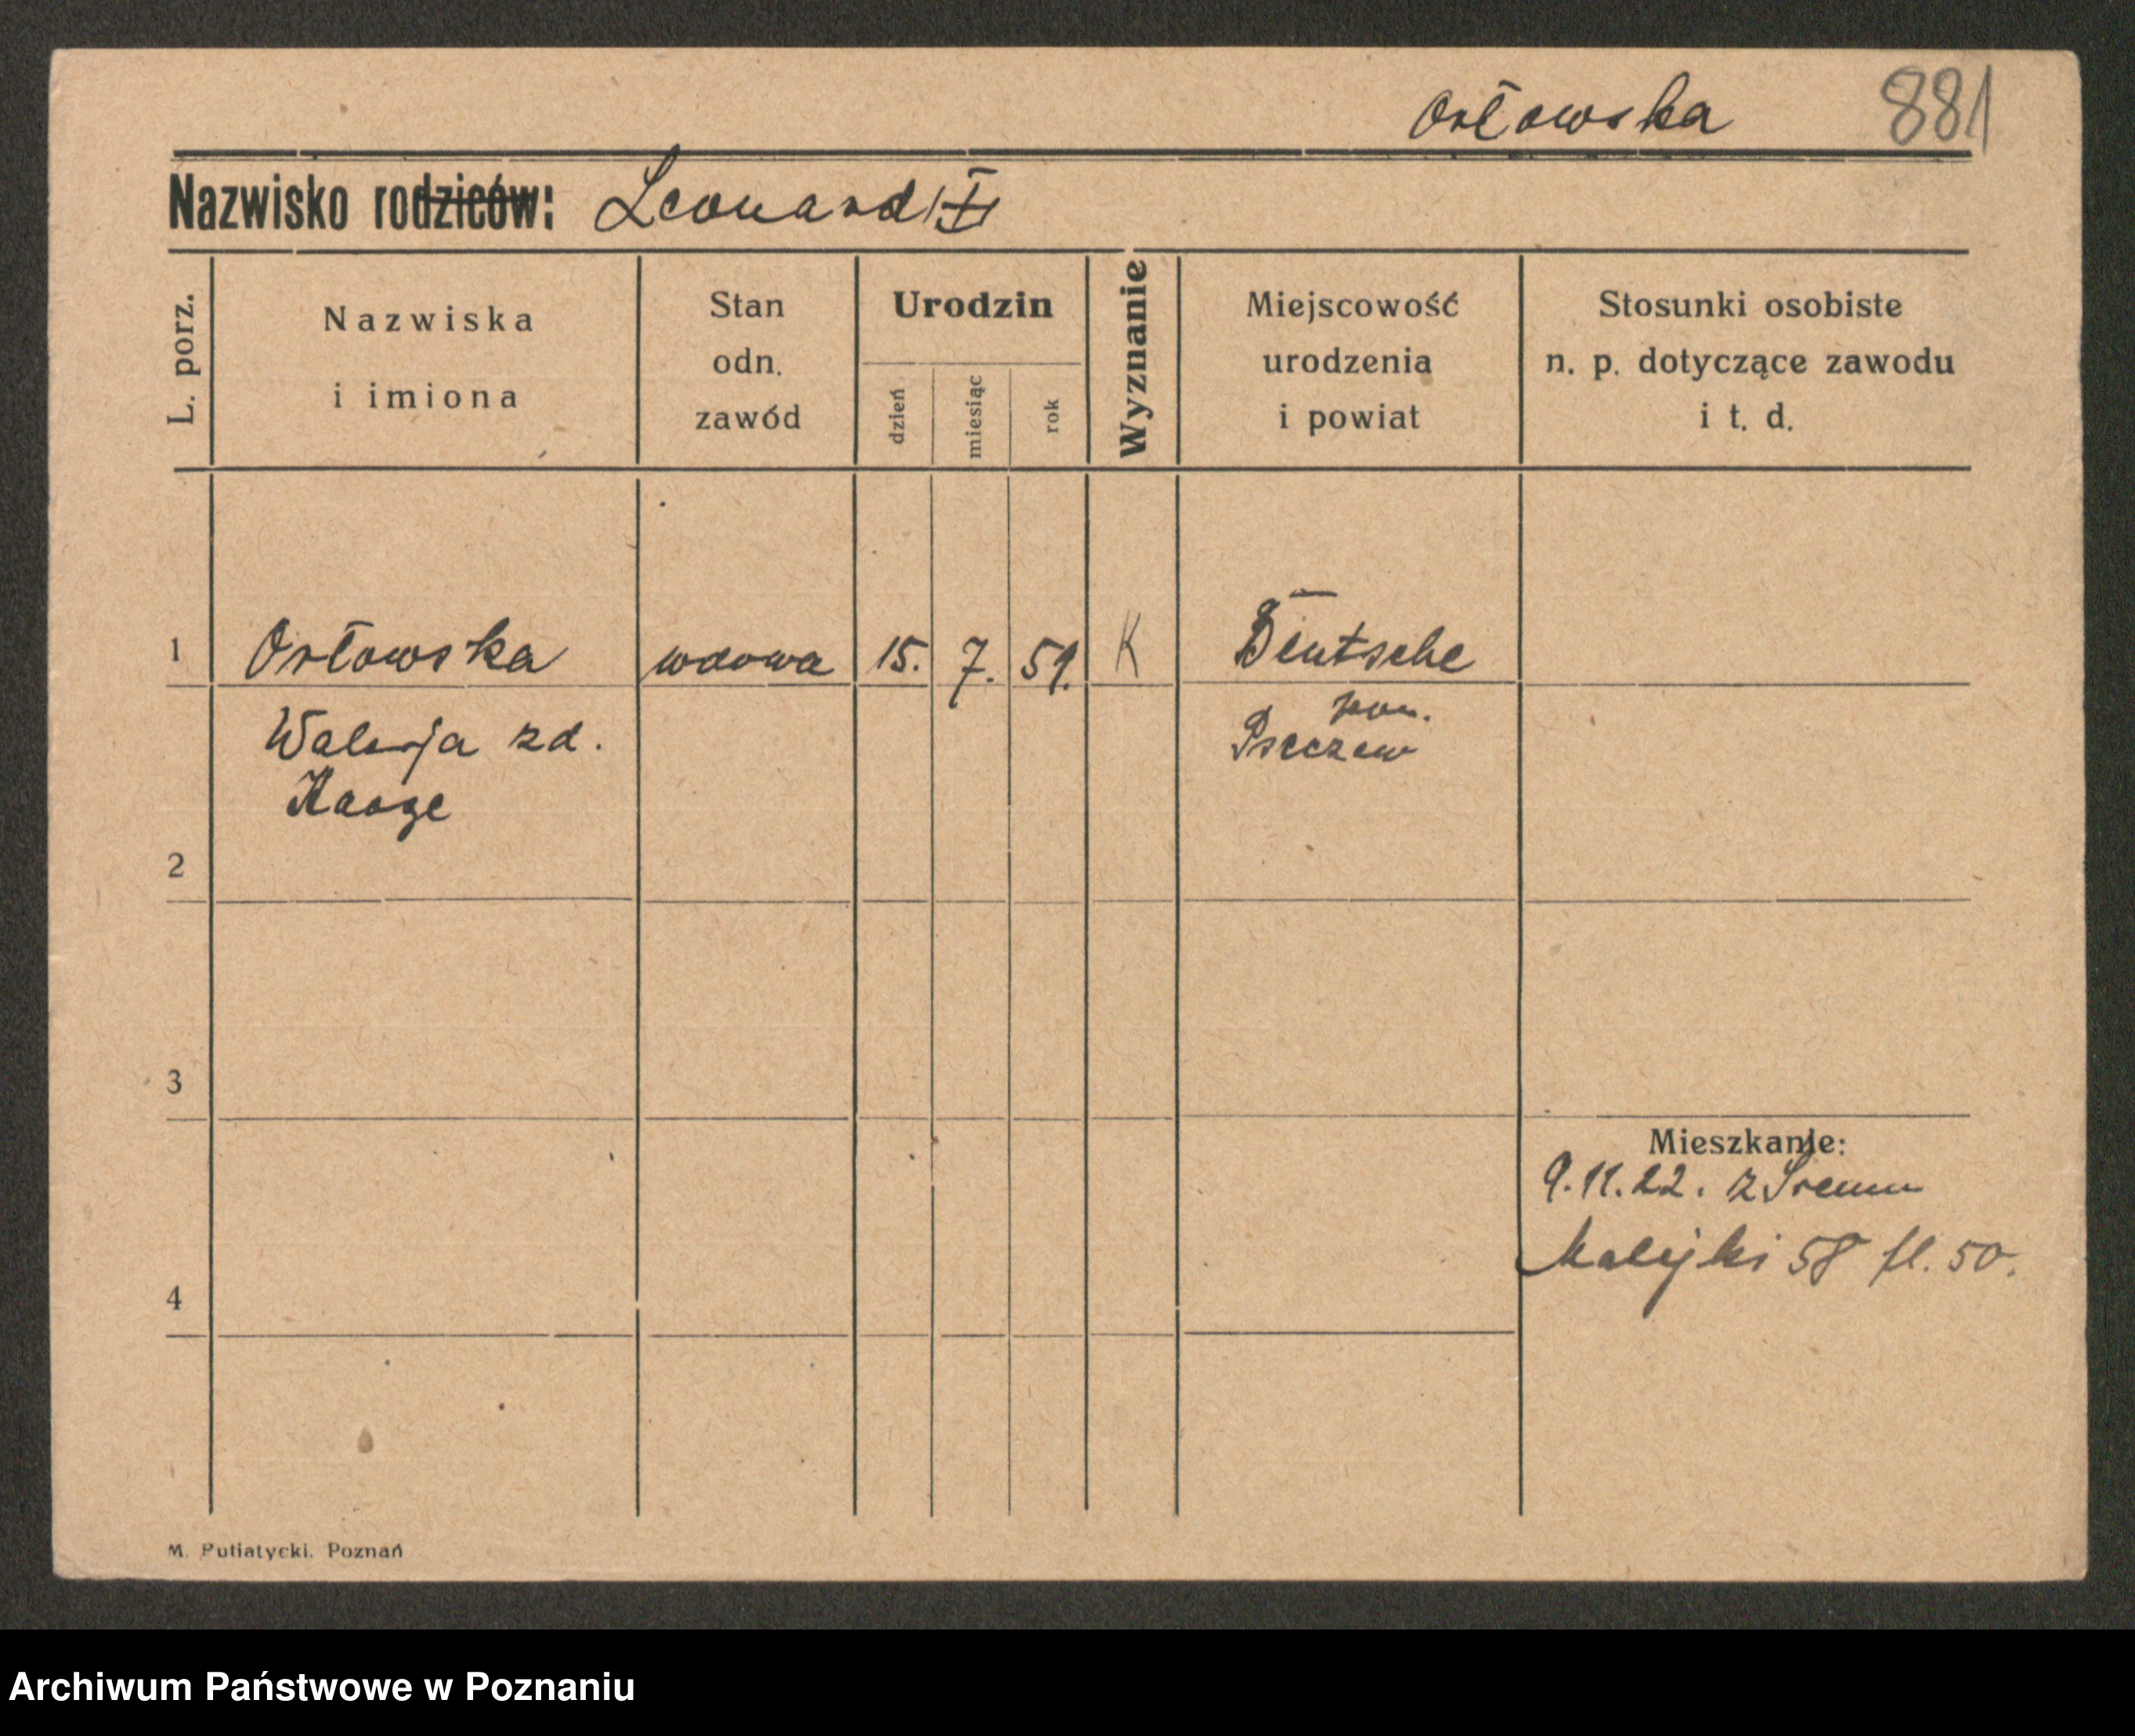 Orłowska 881
Nazwisko rodziców: Leonard
L. porz.
Nazwiska
i imiona
Stan
odn.
zawód
Urodzin
dzień
miesiąc
rok
Wyznanie
Miejscowość
urodzenia
i powiat
Stosunki osobiste
n. p. dotyczące zawodu
i t. d.
1 Orłowska wdowa 15. 7. 51. K Deutsche
Walerja zd. pow.
2
3
Mieszkanie:
9.11.22. z Śremu
Malejki 58 fl. 50.
4
M. Putiatycki. Poznań
Archiwum Państwowe w Poznaniu